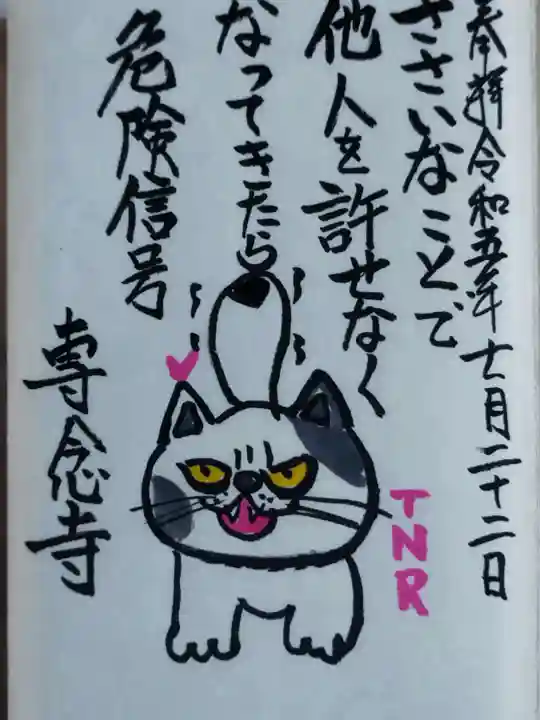 奉拝令和五年七月二十二日
ささいなことで
他人を許せなく
なってきたら
危険信号
専念寺
TNR